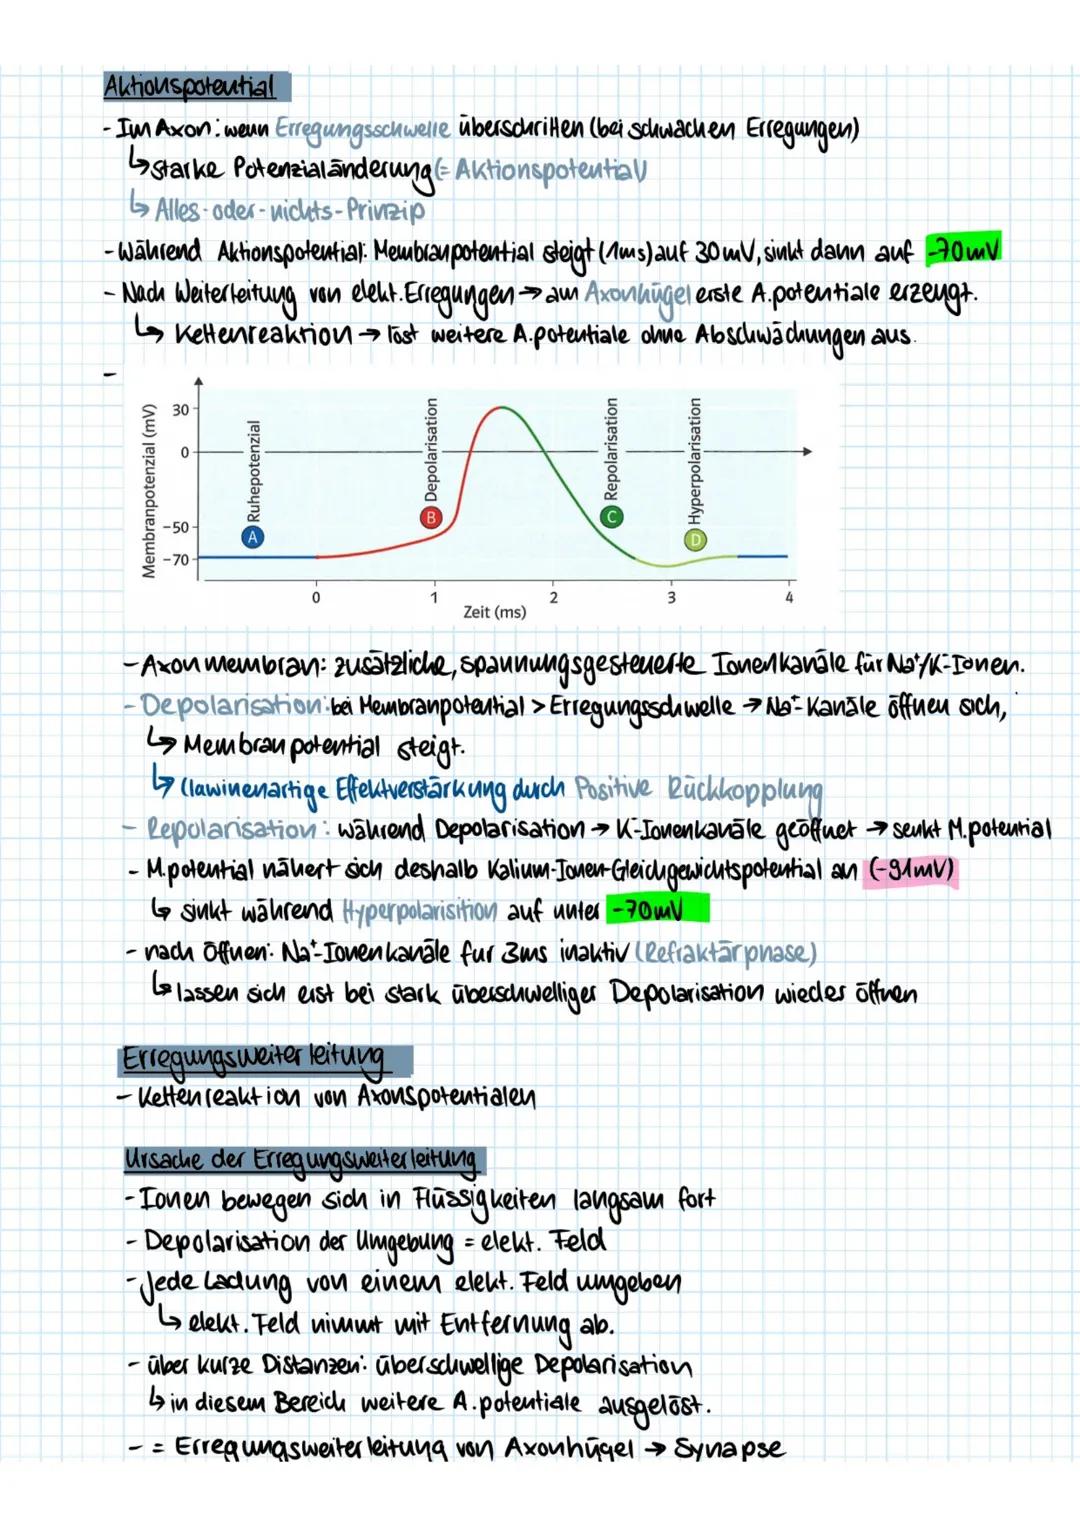 Aktionspotential
- Im Axon: wenn Erregungsschwelle überschritten (bei schwachen Erregungen)
↳ starke Potenzialänderung (= Aktionspotential)
↳ Alles-oder-nichts-Prinzip
- Während Aktionspotential: Membranpotential steigt (1ms) auf 30mV, sinkt dann auf -70mV
- Nach Weiterleitung von elekt. Erregungen → am Axonhügel erste A.potentiale erzeugt.
↳ Kettenreaktion → löst weitere A.potentiale ohne Abschwächungen aus.
-
Membranpotenzial (mV)
30
0
-50
-70
A Ruhepotenzial
B Depolarisation
C Repolarisation
D Hyperpolarisation
0 1 2 3 4
Zeit (ms)
- Axonmembran: zusätzliche, spannungsgesteuerte Ionenkanäle für Na⁺/K-Ionen.
- Depolarisation: bei Membranpotential > Erregungsschwelle → Na⁺-Kanäle öffnen sich,
↳ Membranpotential steigt.
↳ (lawinenartige Effektverstärkung durch Positive Rückkopplung
- Repolarisation: während Depolarisation → K-Ionenkanäle geöffnet → senkt M.potential
- M.potential nähert sich deshalb Kalium-Ionen-Gleichgewichtspotential an (-91mV)
↳ sinkt während Hyperpolarisition auf unter -70mV
- nach Öffnen: Na⁺-Ionenkanäle fur 3ms inaktiv (Refraktärphase)
↳ lassen sich erst bei stark überschwelliger Depolarisation wieder öffnen
Erregungsweiterleitung
- Kettenreaktion von Axonspotentialen
Ursache der Erregungsweiterleitung
- Ionen bewegen sich in Flüssigkeiten langsam fort
- Depolarisation der Umgebung = elekt. Feld
- Jede Ladung von einem elekt. Feld umgeben
↳ elekt. Feld nimmt mit Entfernung ab.
- über kurze Distanzen: überschwellige Depolarisation
↳ in diesem Bereich weitere A.potentiale ausgelöst.
- = Erregungsweiterleitung von Axonhügel → Synapse